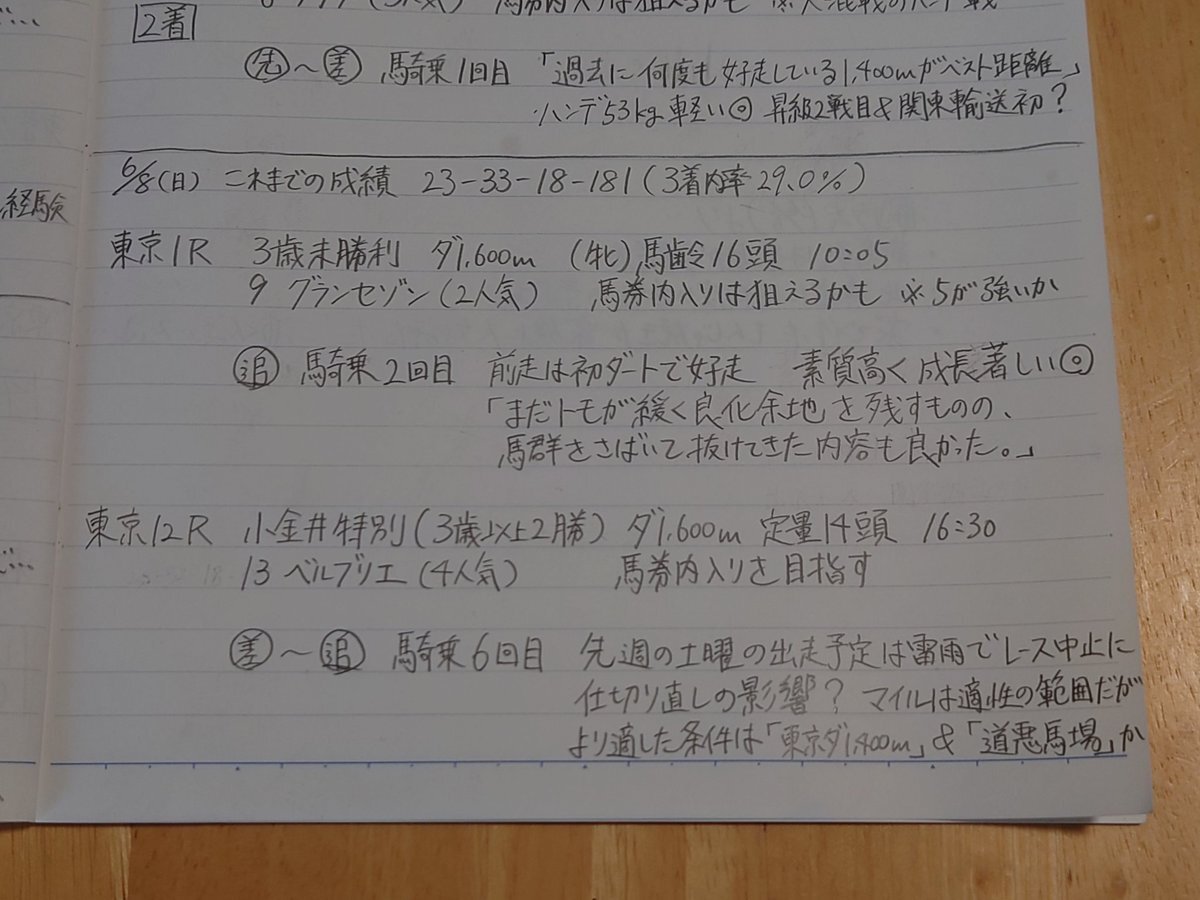 (3人気) 馬券内入りは狙えるかも ※大混戦のハンデ戦
2着
先〜差 騎乗1回目 「過去に何度も好走している1,400mがベスト距離」
ハンデ53kg軽い◎ 昇級2戦目&関東輸送初?
6/8(日) これまでの成績 23-33-18-181(3着内率29.0%)
経験
東京1R 3歳未勝利 ダ1,600m (牝)馬齢16頭 10:05
9 グランセゾン(2人気) 馬券内入りは狙えるかも ※5が強いか
追 騎乗2回目 前走は初ダートで好走 素質高く成長著しい◎
「まだトモが緩く良化余地を残すものの、
馬群をさばいて抜けてきた内容も良かった。」
東京12R 小金井特別(3歳以上2勝) ダ1,600m 定量14頭 16:30
13 ベルブリエ(4人気) 馬券内入りを目指す
差〜追 騎乗6回目 先週の土曜の出走予定は雷雨でレース中止に
仕切り直しの影響? マイルは適性の範囲だが
より適した条件は「東京ダ1,400m」&「道悪馬場」か